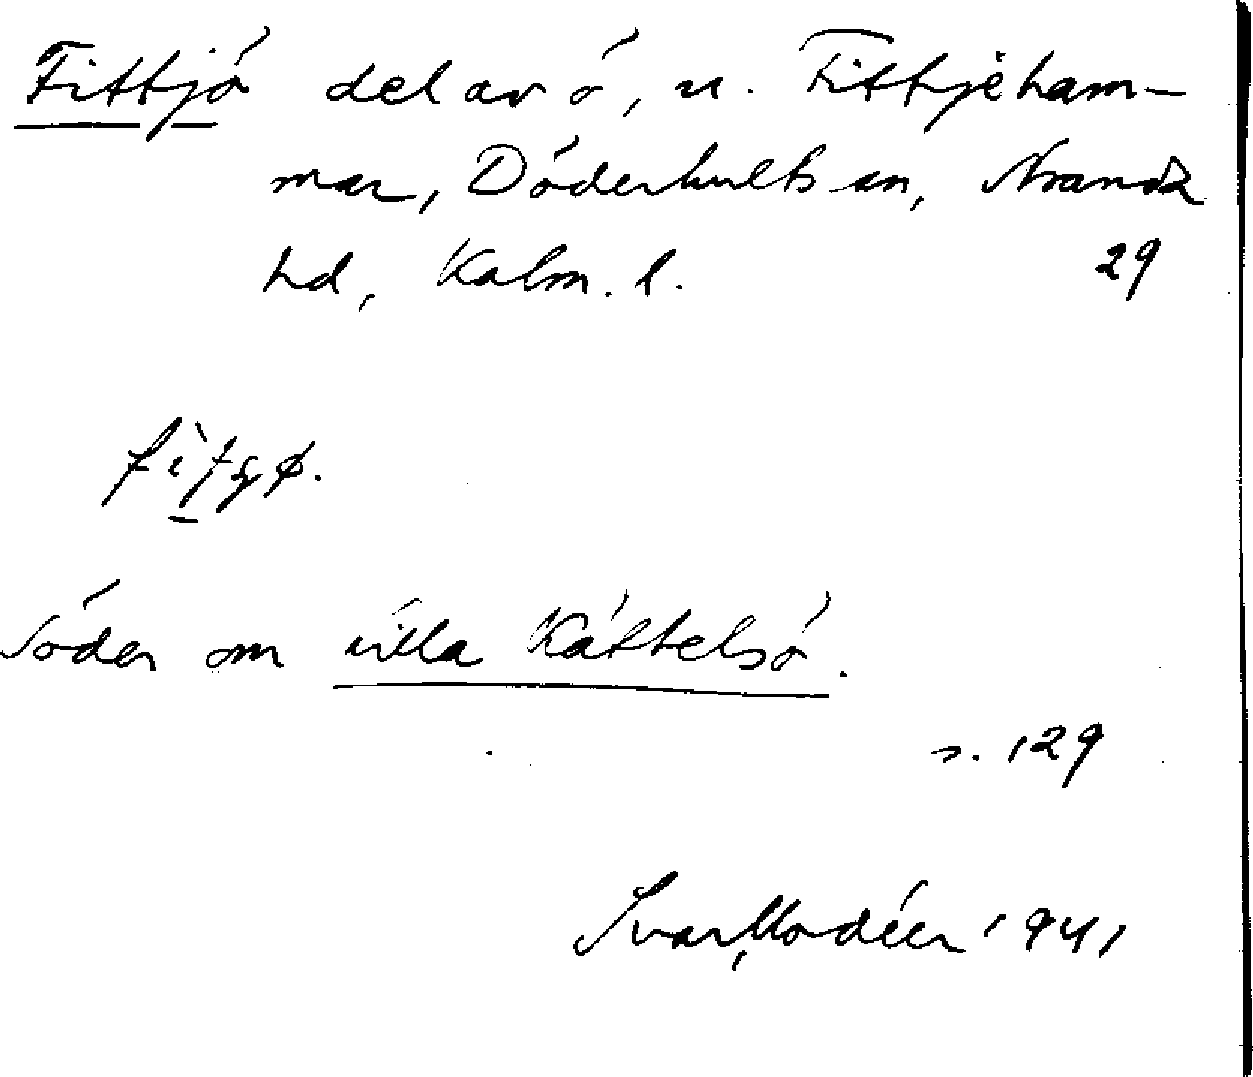 Fittjö del av ö, u. Fittjeham-
mar, Döderhults sn, Stranda
hd, Kalm. l. 29
Söder om lilla Kättelsö.
s. 129
Ivar Modéer 1941